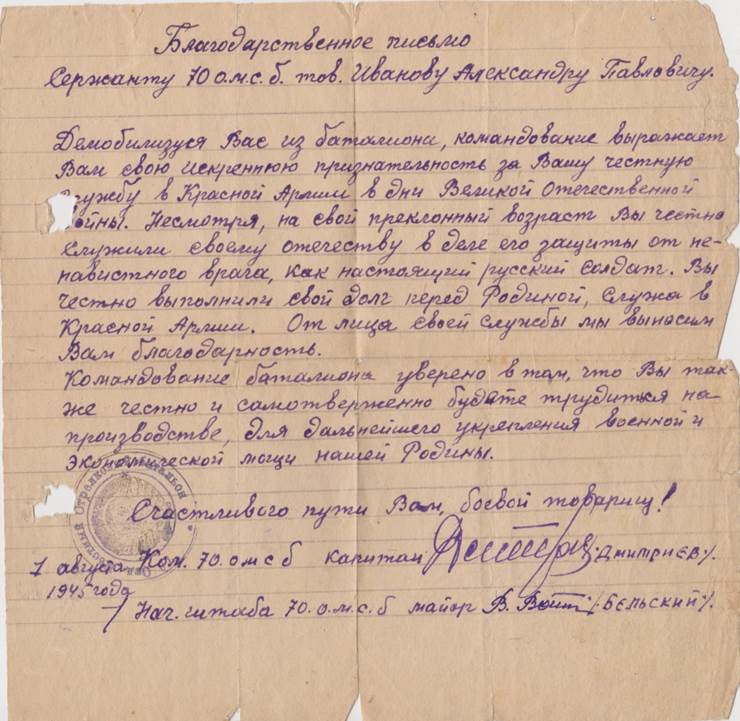 Благодарственное письмо
Сержанту 70 о.м.с.б. тов. Иванову Александру Павловичу.
Демобилизуя Вас из баталиона, командование выражает
Вам свою искреннюю признательность за Вашу честную
службу в Красной Армии в дни Великой Отечественной
войны. Несмотря, на свой преклонный возраст Вы честно
служили своему отечеству в деле его защиты от не-
навистного врага, как настоящий русский солдат. Вы
честно выполнили свой долг перед Родиной, служа в
Красной Армии. От лица своей службы мы выносим
Вам благодарность.
Командование баталиона уверено в том, что Вы так-
же честно и самотверженно будете трудиться на
производстве, для дальнейшего укрепления военной и
экономической мощи нашей Родины.
Счастливого пути Вам, боевой товарищ!
1 августа Ком. 70. о м с б капитан /Дмитриев/.
1945 года
Нач. штаба 70. о. м. с. б майор /Бельский/.